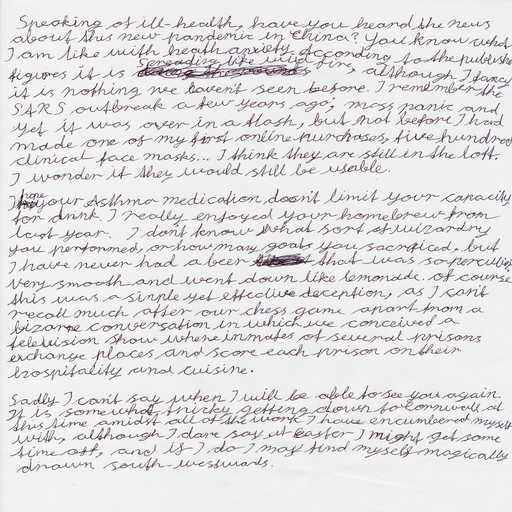 Speaking of ill-health, have you heard the news
about this new pandemic in China? You know what
I am like with heath anxiety. According to the publishe
figures it is spreading like wild fire, although I fancy
it is nothing we havent seen before. I remember the
SARS outbreak a few years ago; mass panic and
yet it was over in a flash, but not before I had
made one of my first online purchases, five hundred
clinical face masks... I think they are still in the loft.
I wonder if they would still be usable.
I hope your Asthma medication doesn't limit your capacity
for drink. I really enjoyed your homebrew from
last year. I don't know what sort of wizardry
you performed, or how many goats you sacrificed, but
I have never had a beer that was so peculi
very smooth and went down like lemonade. Of course
this was a simple yet effective deception, as I can't
recall much after our chess game apart from a
bizarre conversation in which we conceived a
television show where inmates of several prisons
exchange places, and score each prison on their
hospitality and cuisine.
Sadly I can't say when I will be able to see you again.
It is somewhat tricky getting down to Cornwall at
this time amidst all of the work I have encumbered myself
with, although I dare say at Easter I might get some
time off, and if I do I may find myself magically
drawn south-westwards.